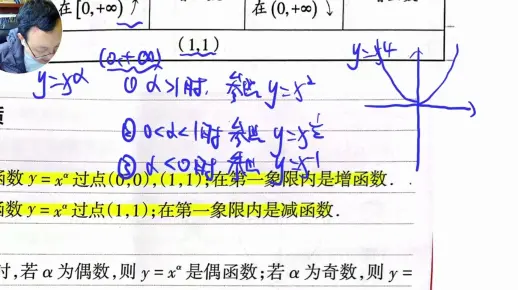 在[0,+∞)↗ 在(0,+∞)↘
(1,1)
(0,+∞)
y=x^α ① α>1时, 参照 y=x² y=x⁴
② 0<α<1时 参照 y=x^½
③ α<0时 参照 y=x⁻¹
函数 y=x^α 过点(0,0),(1,1);在第一象限内是增函数.
函数 y=x^α 过点(1,1);在第一象限内是减函数.
时,若 α 为偶数,则 y=x^α 是偶函数;若 α 为奇数,则 y=